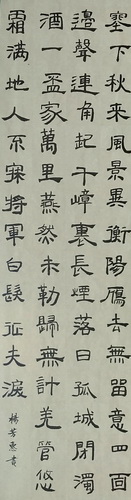 塞下秋来風景異衡陽雁去無留意四面
邊聲連角起千嶂裏長煙落日孤城閉濁
酒一盃家萬里燕然未勒歸無計羌管悠
霜滿地人不寐將軍白髮征夫淚
楊芳惠書